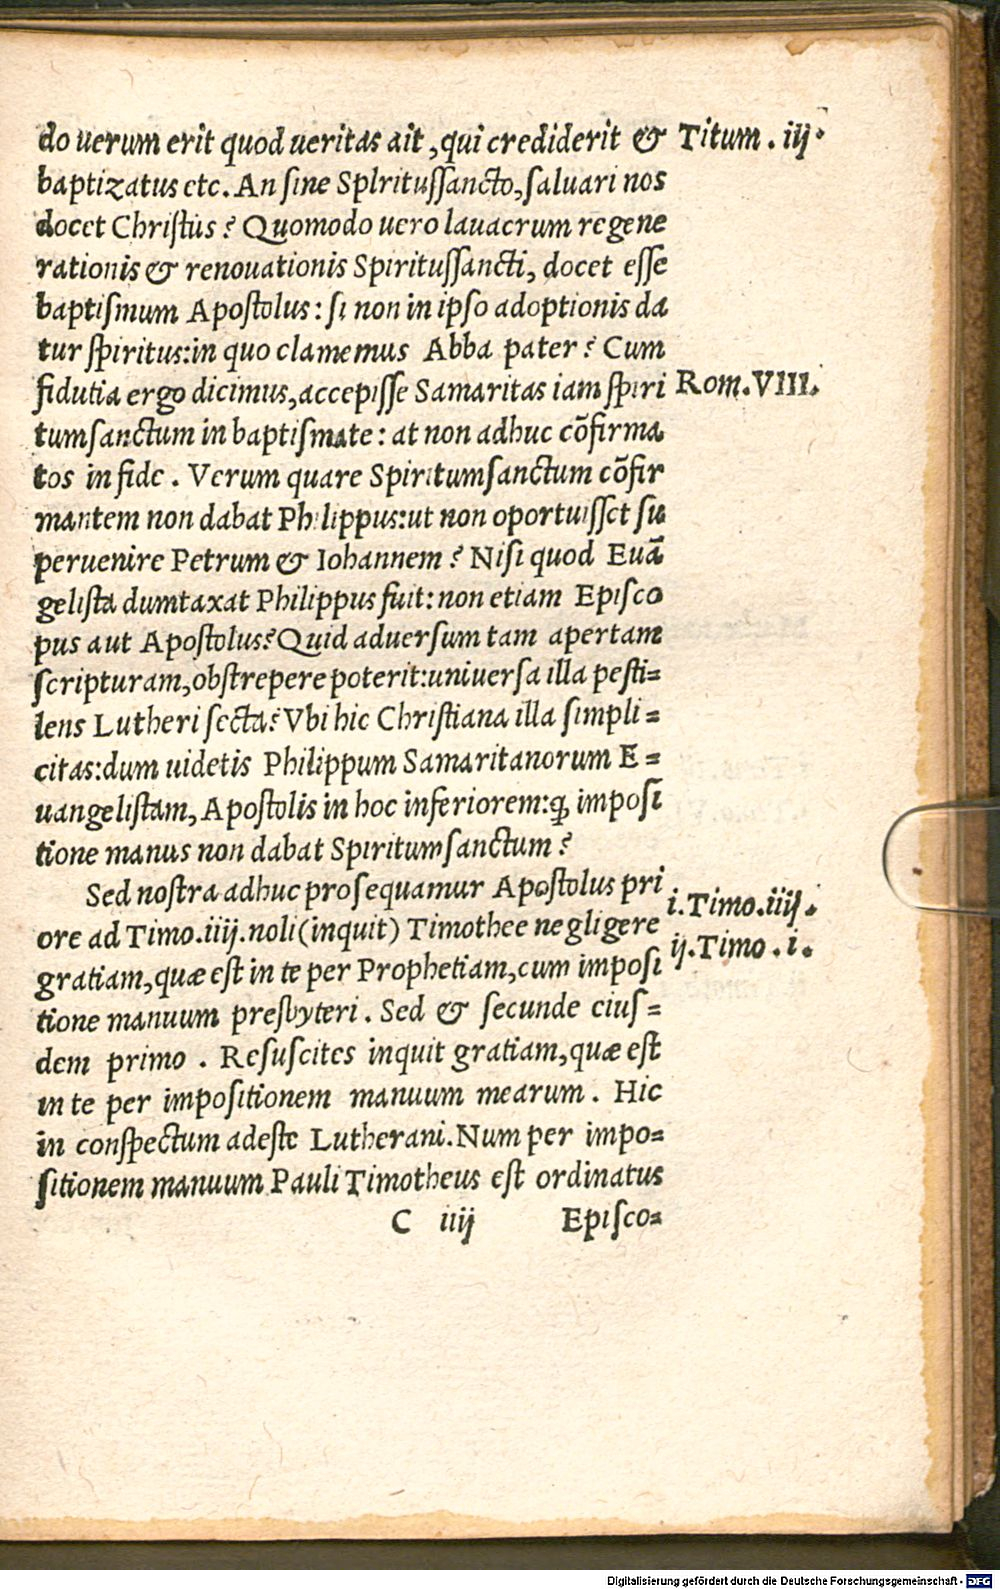 do uerum erit quod ueritas ait, qui crediderit & Titum. iij.
baptizatus etc. An sine Splritussancto, saluari nos
docet Christus? Quomodo uero lauacrum regene
rationis & renouationis Spiritussancti, docet esse
baptismum Apostolus: si non in ipso adoptionis da
tur spiritus: in quo clamemus Abba pater? Cum
fidutia ergo dicimus, accepisse Samaritas iam spiri Rom. VIII.
tumsanctum in baptismate: at non adhuc cõfirma
tos in fide. Verum quare Spiritumsanctum cõfir
mantem non dabat Philippus: ut non oportuisset su
peruenire Petrum & Iohannem? Nisi quod Euã
gelista dumtaxat Philippus fuit: non etiam Episco
pus aut Apostolus? Quid aduersum tam apertam
scripturam, obstrepere poterit: uniuersa illa pesti=
lens Lutheri secta? Vbi hic Christiana illa simpli=
citas: dum uidetis Philippum Samaritanorum E=
uangelistam, Apostolis in hoc inferiorem: ꝙ imposi
tione manus non dabat Spiritumsanctum?
Sed nostra adhuc prosequamur Apostolus pri
i. Timo. iiij.
ore ad Timo. iiij. noli (inquit) Timothee negligere
ij. Timo. i.
gratiam, quæ est in te per Prophetiam, cum imposi
tione manuum presbyteri. Sed & secunde eius=
dem primo. Resuscites inquit gratiam, quæ est
in te per impositionem manuum mearum. Hic
in conspectum adeste Lutherani. Num per impo=
sitionem manuum Pauli Timotheus est ordinatus
C iiij Episco=
Digitalisierung gefördert durch die Deutsche Forschungsgemeinschaft - DFG